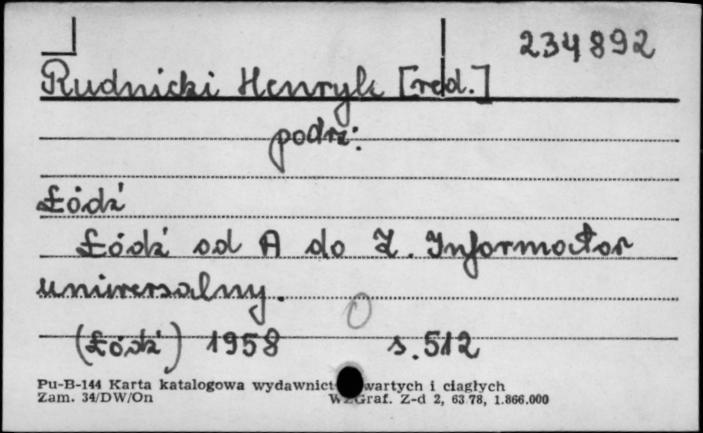 234892
Rudnicki Henryk [red.]
podrz:
Łódź
Łódź od A do Z. Informator
uniwersalny.
(Łódź) 1958 s. 512
Pu-B-144 Karta katalogowa wydawnict wartych i ciągłych
Zam. 34/DW/On WZGraf. Z-d 2, 63 78, 1.866.000